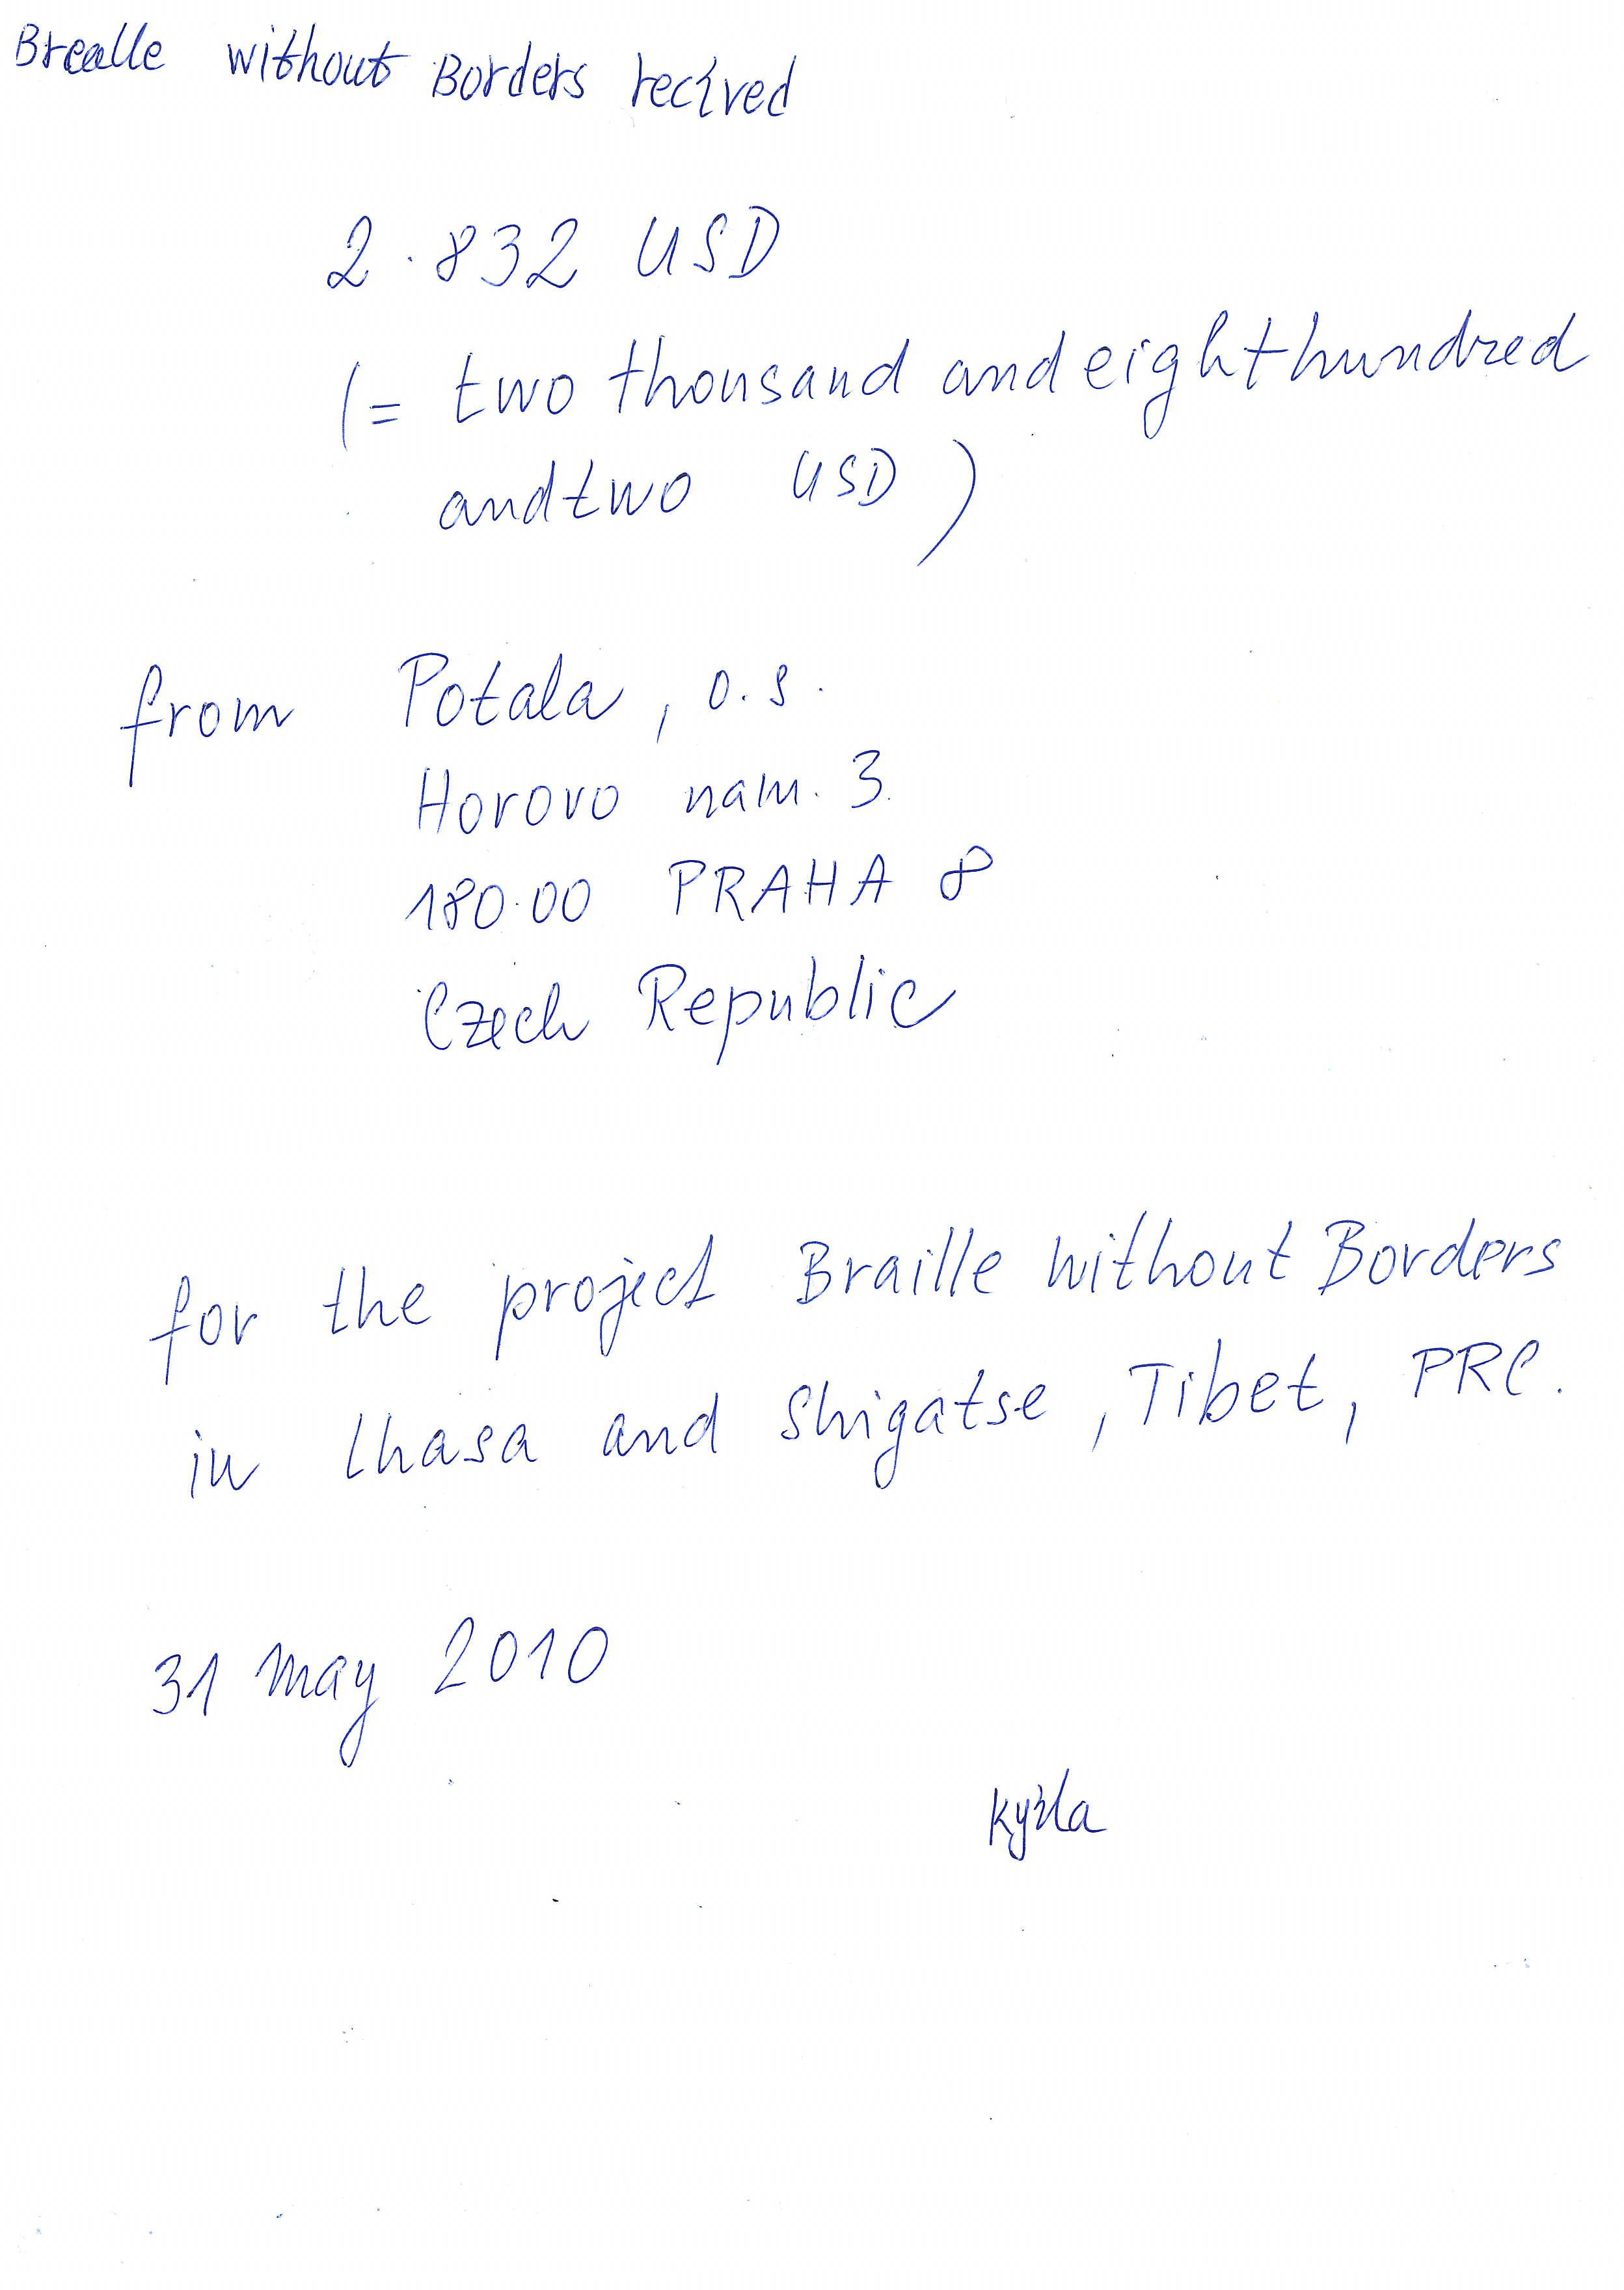 Brealle without Borders recived
2.832 USD
(= two thousand and eighthundred
andtwo USD)
from Potala, o.s.
Horovo nam. 3
180.00 PRAHA 8
Czech Republic
for the project Braille without Borders
in Lhasa and Shigatse, Tibet, PRC.
31 May 2010